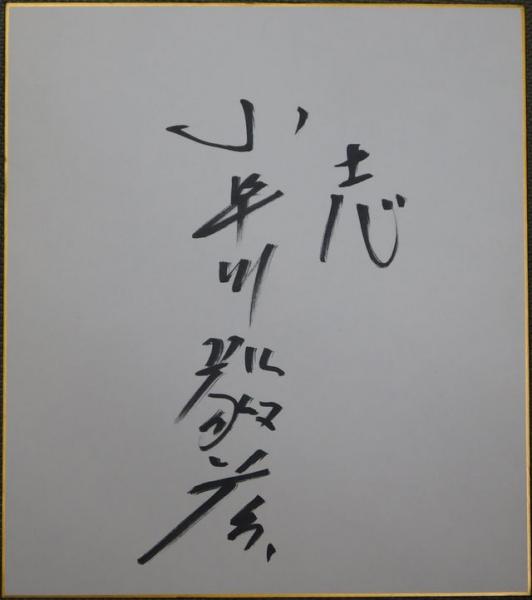 志
小早川毅彦